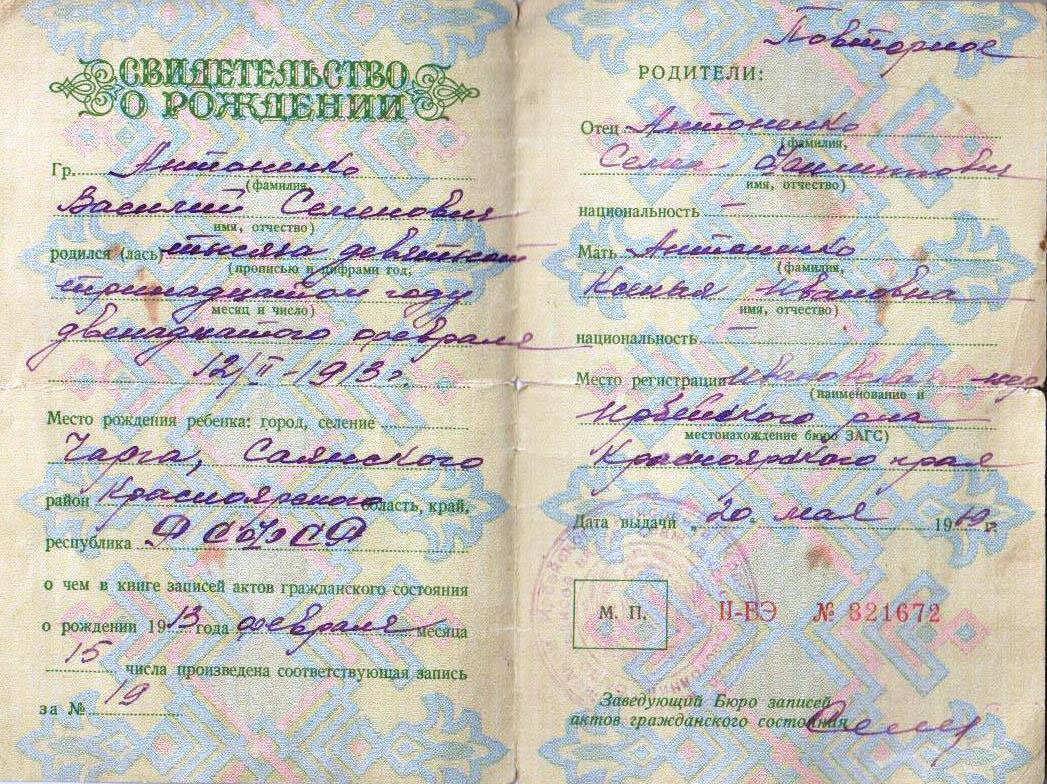 СВИДЕТЕЛЬСТВО
О РОЖДЕНИИ
Гр. Антоненко
(фамилия,
Василий Семенович
имя, отчество)
родился (лась) тысяча девятьсот
(прописью и цифрами год,
тринадцатом году
месяц и число)
двенадцатого февраля
12/II-1913г.
Место рождения ребенка: город, селение
Чарга, Саянского
район Красноярского область, край,
республика РСФСР
о чем в книге записей актов гражданского состояния
о рождении 1913 года февраля месяца
15 числа произведена соответствующая запись
за № 19
Повторное
РОДИТЕЛИ:
Отец Антоненко
(фамилия,
Семен
имя, отчество)
национальность —
Мать Антоненко
(фамилия,
Ксенья Ивановна
имя, отчество)
национальность —
Место регистрации
(наименование и
Ирбейского р-на
местонахождение бюро ЗАГС)
Красноярского края
Дата выдачи „20" мая 1969 г.
М. П. II-БЭ № 821672
Заведующий Бюро записей
актов гражданского состояния